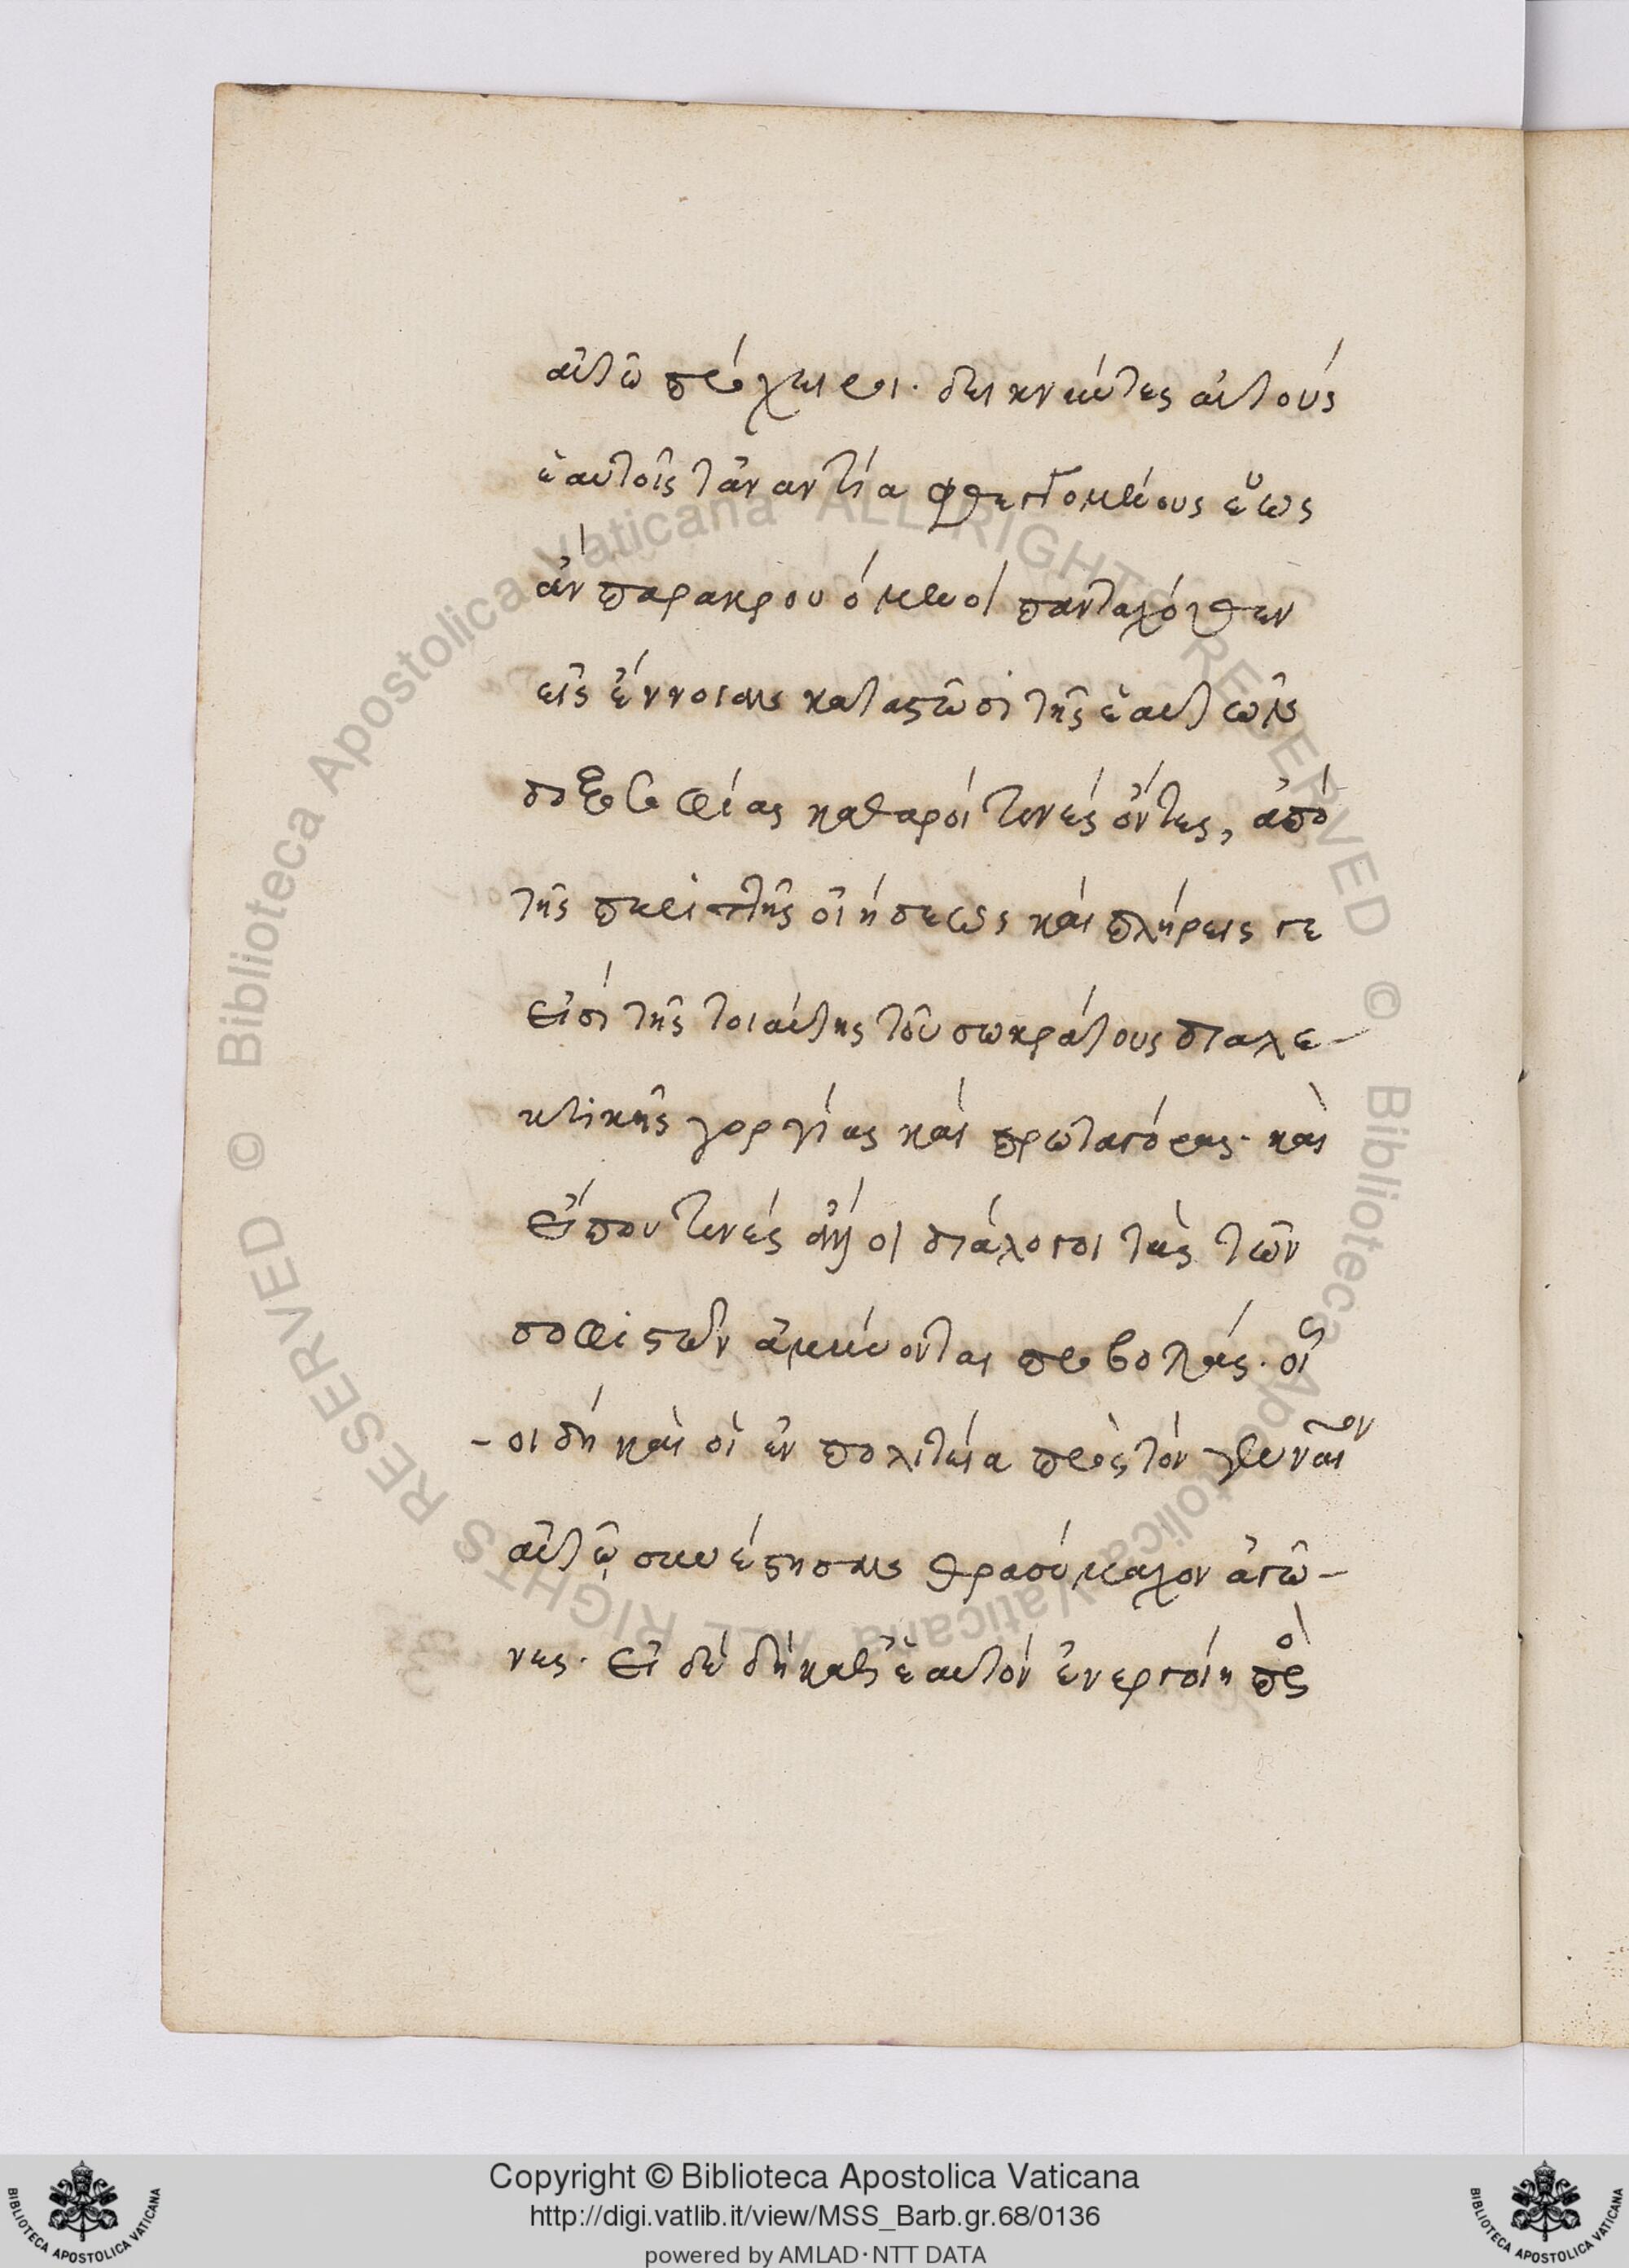 αὐτῶ πρόχειροι· δεικνύντες αὐτούς
ἑαυτοῖς τἀναντία φθεγγομένους ἕως
ἄν παρακρουόμενοι πανταχόθεν
εἰς ἔννοιαν καταστῶσι τῆς ἑαυτῶν
δοξοσοφίας καθαροί τινές ὄντες, ἀπό
τῆς περιττῆς οἰήσεως καὶ πλήρεις γε
εἰσί τῆς τοιαύτης τοῦ σωκράτους διαλε-
κτικῆς γοργίας καὶ πρωταγόρας· καὶ
εἴπου τινές ἄλλοι διάλογοι τὰς τῶν
σοφιστῶν ἀμύνονται προβολάς· οἷ
-οι δή καὶ οἱ ἐν πολιτεία πρὸς τὸν γενναῖον
αὐτῶ συνέστησαν θρασύμαχον ἀγῶ-
νες· εἰ δέ δή καθ' ἑαυτόν ἐνεργοίη πρὸς
Copyright © Biblioteca Apostolica Vaticana
http://digi.vatlib.it/view/MSS_Barb.gr.68/0136
powered by AMLAD·NTT DATA
BIBLIOTECA APOSTOLICA VATICANA
BIBLIOTECA APOSTOLICA VATICANA
© Biblioteca Apostolica Vaticana ALL RIGHTS RESERVED
© Biblioteca Apostolica Vaticana ALL RIGHTS RESERVED